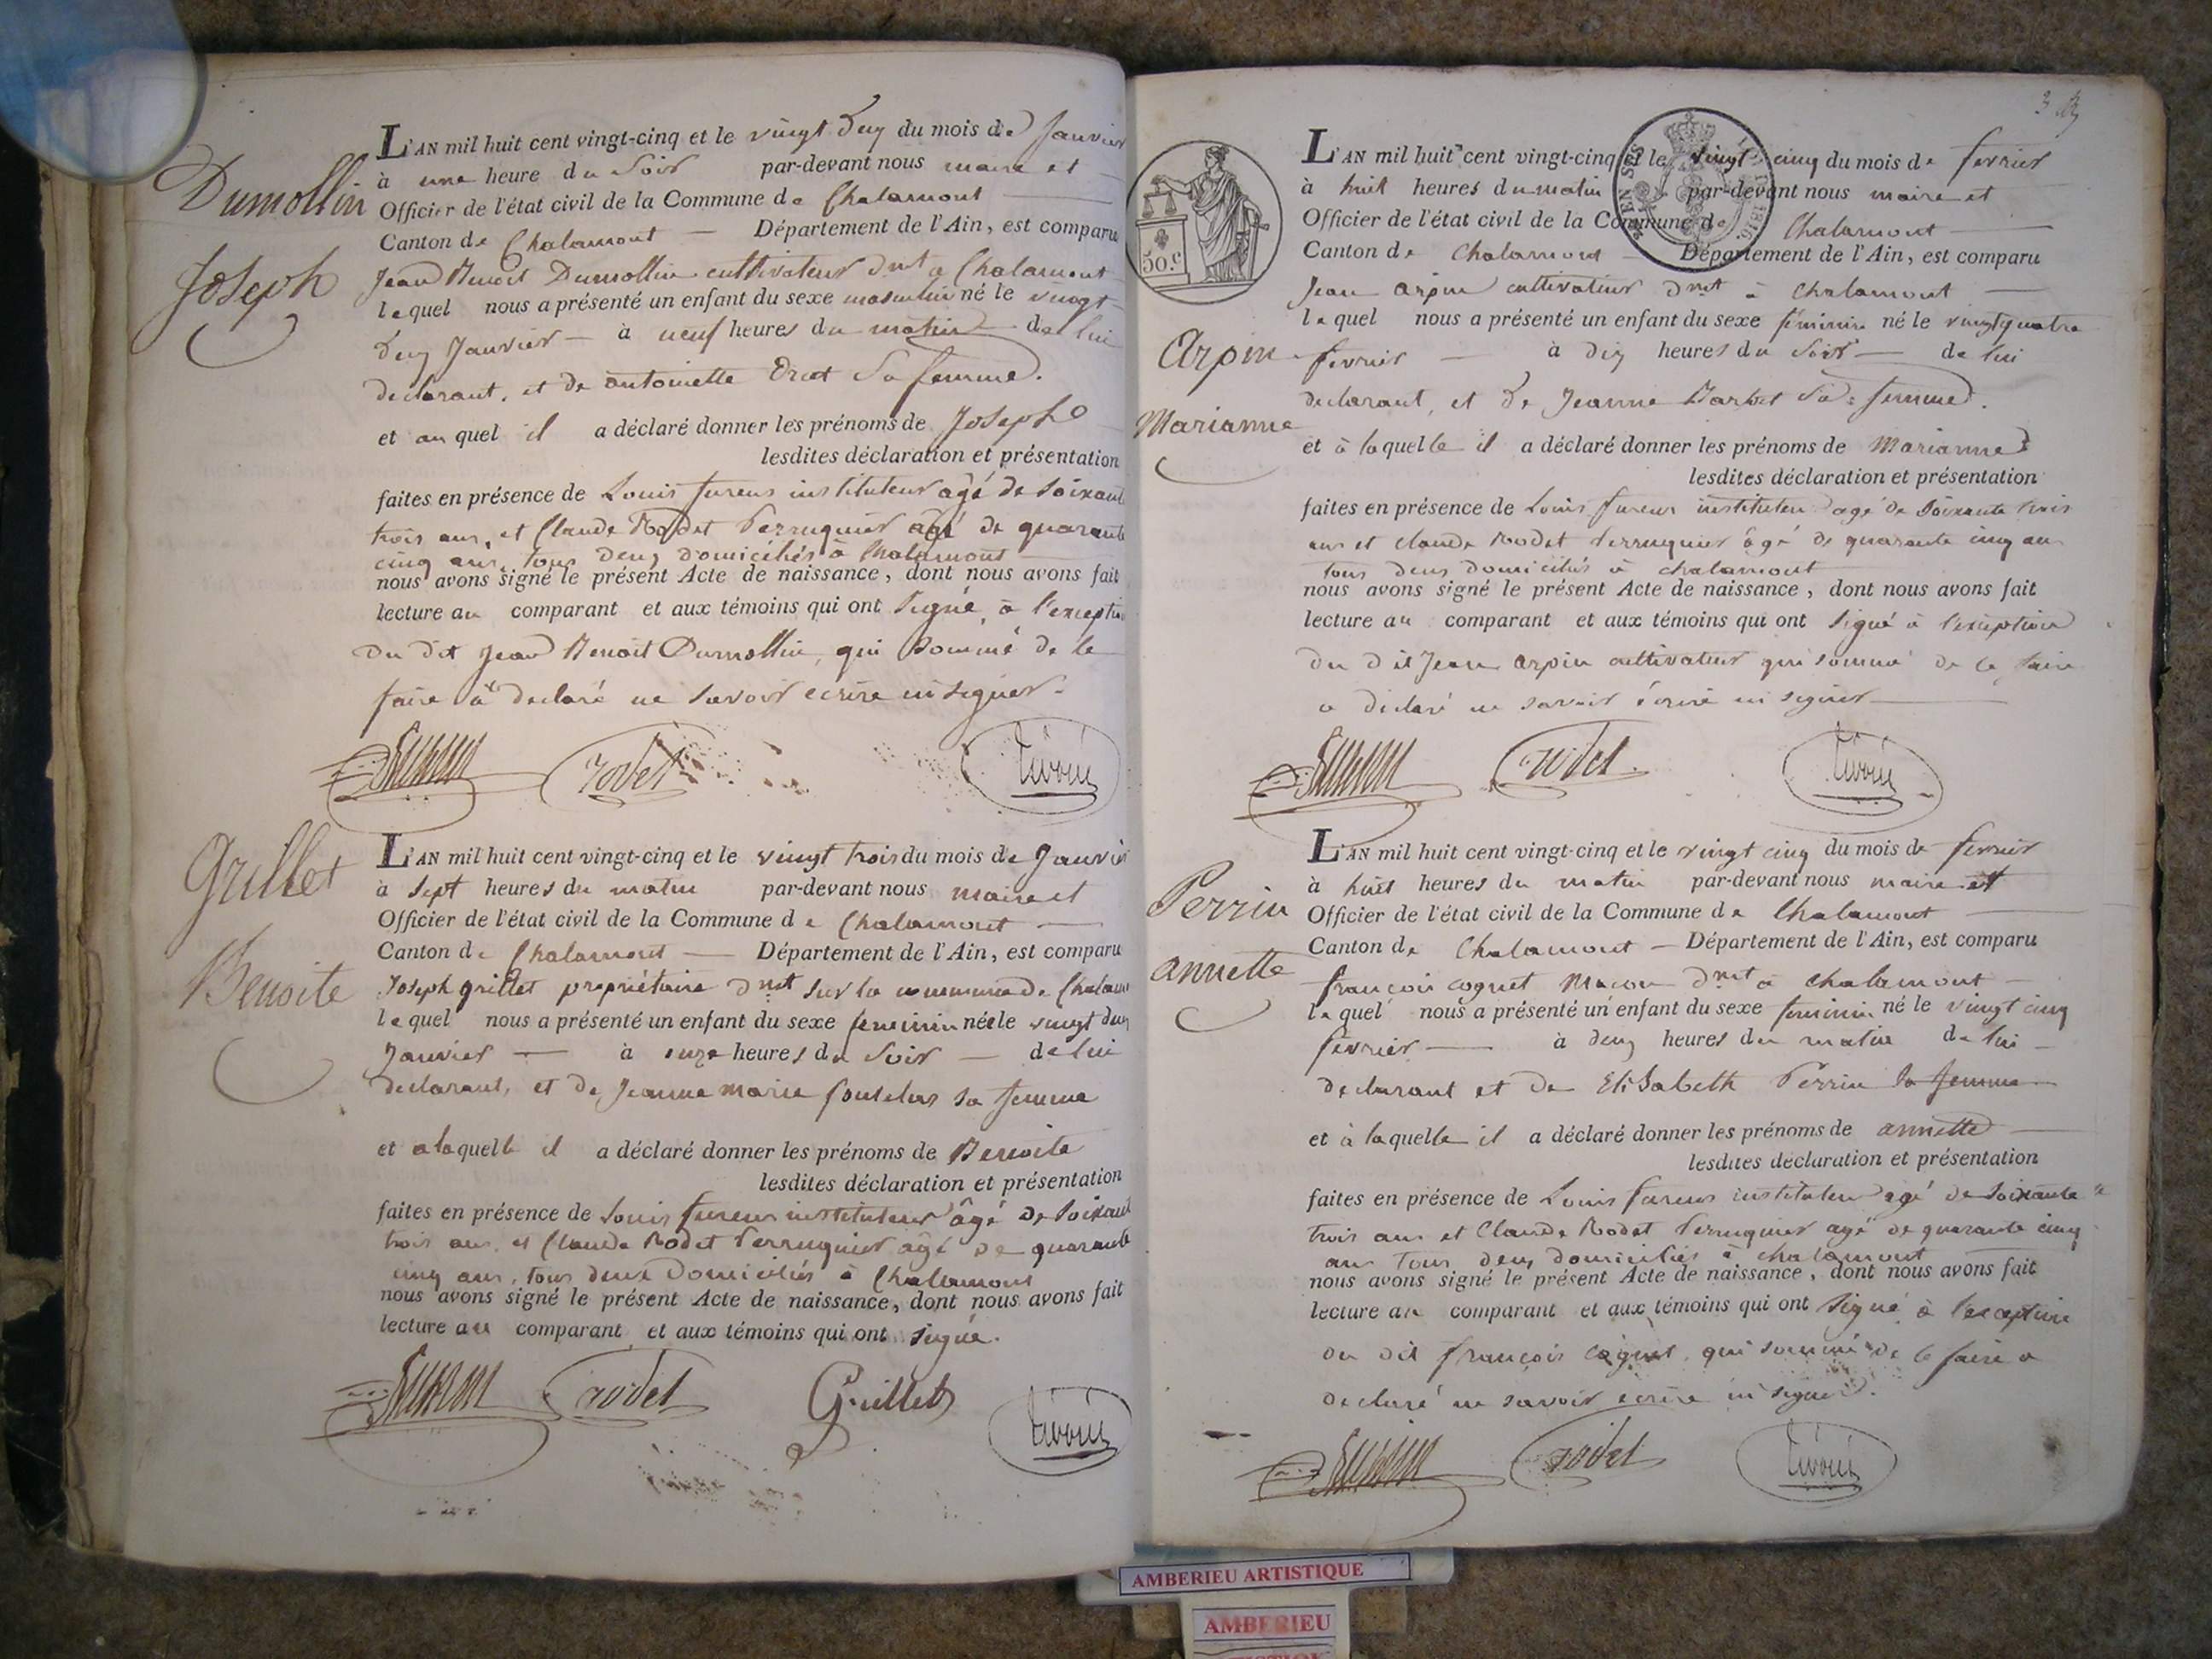 Dumollin
Joseph
L'AN mil huit cent vingt-cinq et le vingt deux du mois de Janvier
à une heure du Soir par-devant nous maire et
Officier de l'état civil de la Commune de Chalamont
Canton de Chalamont Département de l'Ain, est comparu
Jean Benoit Dumollin cultivateur dmt à Chalamont
lequel nous a présenté un enfant du sexe masculin né le vingt
deux Janvier à neuf heures du matin de lui
declarant, et de antoinette sa femme.
et auquel il a déclaré donner les prénoms de Joseph
lesdites déclaration et présentation
faites en présence de Louis fureus instituteur agé de soixante
trois ans, et Claude Rodet Perruquier agé de quarante
cinq ans, tous deux domiciliés à Chalamont
nous avons signé le présent Acte de naissance, dont nous avons fait
lecture au comparant et aux témoins qui ont signé, à l'exception
du dit Jean Benoit Dumollin, qui sommé de le
faire à declaré ne savoir ecrire ni signer.
rodet
Grillet
Benoite
L'AN mil huit cent vingt-cinq et le vingt trois du mois de Janvier
à sept heures du matin par-devant nous maire et
Officier de l'état civil de la Commune de Chalamont
Canton de Chalamont Département de l'Ain, est comparu
Joseph grillet propriétaire dmt sur la commune de Chalamont
lequel nous a présenté un enfant du sexe feminin née le vingt deux
Janvier à onze heures du Soir de lui
declarant, et de Jeanne marie sa femme
et a laquelle il a déclaré donner les prénoms de Benoite
lesdites déclaration et présentation
faites en présence de Louis fureus instituteur âgé de soixante
trois ans, et Claude Rodet Perruquier agé de quarante
cinq ans, tous deux domiciliés à Chalamont
nous avons signé le présent Acte de naissance, dont nous avons fait
lecture au comparant et aux témoins qui ont signé.
rodet Grillet
3
50.c
Arpin
Marianne
L'AN mil huit cent vingt-cinq et le vingt cinq du mois de fevrier
à huit heures du matin par-devant nous maire et
Officier de l'état civil de la Commune de Chalamont
Canton de Chalamont Département de l'Ain, est comparu
Jean Arpin cultivateur dmt à Chalamont
lequel nous a présenté un enfant du sexe féminin né le vingt quatre
fevrier à dix heures du Soir de lui
declarant, et de Jeanne Barbet sa femme.
et à laquelle il a déclaré donner les prénoms de Marianne
lesdites déclaration et présentation
faites en présence de Louis fureus instituteur agé de soixante trois
ans et Claude Rodet Perruquier âgé de quarante cinq ans
tous deux domiciliés à Chalamont
nous avons signé le présent Acte de naissance, dont nous avons fait
lecture au comparant et aux témoins qui ont signé à l'exception
du dit Jean Arpin cultivateur qui sommé de le faire
a déclaré ne savoir écrire ni signer
rodet
Perrin
annette
L'AN mil huit cent vingt-cinq et le vingt cinq du mois de fevrier
à huit heures du matin par-devant nous maire et
Officier de l'état civil de la Commune de Chalamont
Canton de Chalamont Département de l'Ain, est comparu
françois cognet Macon dmt à Chalamont
lequel nous a présenté un enfant du sexe feminin né le vingt cinq
fevrier à deux heures du matin de lui
declarant et de Elisabeth Perrin sa femme
et à laquelle il a déclaré donner les prénoms de annette
lesdites déclaration et présentation
faites en présence de Louis fureus instituteur agé de soixante
trois ans et Claude Rodet Perruquier agé de quarante cinq
ans tous deux domiciliés à Chalamont
nous avons signé le présent Acte de naissance, dont nous avons fait
lecture au comparant et aux témoins qui ont signé, à l'exception
du dit françois cognet, qui sommé de le faire a
declaré ne savoir ecrire ni signer.
rodet
AMBERIEU ARTISTIQUE
AMBERIEU